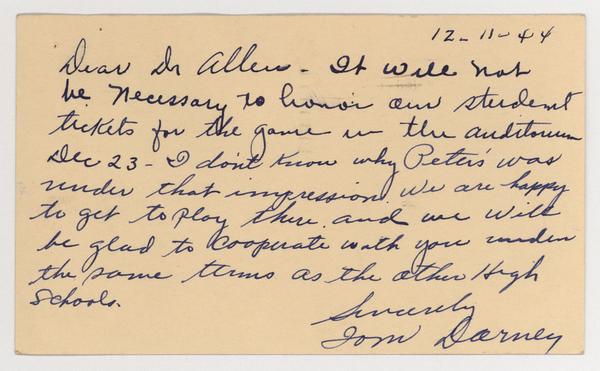 12-11-44
Dear Dr Allen - It will not
be necessary to honor our student
tickets for the game in the auditorium
Dec 23 - I don't know why Peters was
under that impression. We are happy
to get to play there and we will
be glad to cooperate with you under
the same terms as the other High
Schools.
Sincerely
Tom Darney